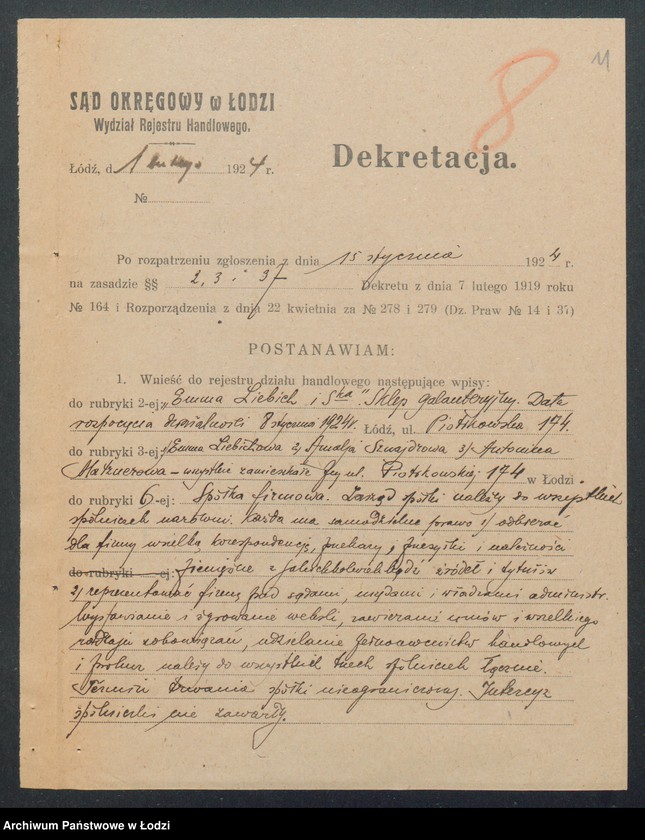 8
11
SĄD OKRĘGOWY w ŁODZI
Wydział Rejestru Handlowego.
Łódź, d. 1 lutego 1924 r.
Dekretacja.
№
Po rozpatrzeniu zgłoszenia z dnia 15 stycznia 1924 r.
na zasadzie §§ 2, 3 i 37 Dekretu z dnia 7 lutego 1919 roku
№ 164 i Rozporządzenia z dnia 22 kwietnia za № 278 i 279 (Dz. Praw № 14 i 37)
POSTANAWIAM:
1. Wnieść do rejestru działu handlowego następujące wpisy:
do rubryki 2-ej: „Emma Liebich i Ska" Sklep galanteryjny. Data
rozpoczęcia działalności 8 stycznia 1924r. Łódź, ul. Piotrkowska 174.
do rubryki 3-ej: 1/ Emma Liebichowa 2/ Amalja Sznajdrowa 3/ Antonina
– wszystkie zamieszkałe przy ul. Piotrkowskiej 174 w Łodzi.
do rubryki 6-ej: Spółka firmowa. Zarząd spółki należy do wszystkich
spólniczek narówni. Każda ma samodzielne prawo 1) odbierać
dla firmy wszelką korespondencję, przekazy, przesyłki i należności
do rubryki ej: pieniężne z jakichkolwiekbądź źródeł i tytułów
2) reprezentować firmę przed sądami, urzędami i władzami administr.
Wystawianie i żyrowanie weksli, zawieranie umów i wszelkiego
rodzaju zobowiązań, udzielanie pełnomocnictw handlowych
i prokur należy do wszystkich trzech spólniczek łącznie.
Termin trwania spółki nieograniczony. Intercyz
spólniczki nie zawarły.
Archiwum Państwowe w Łodzi